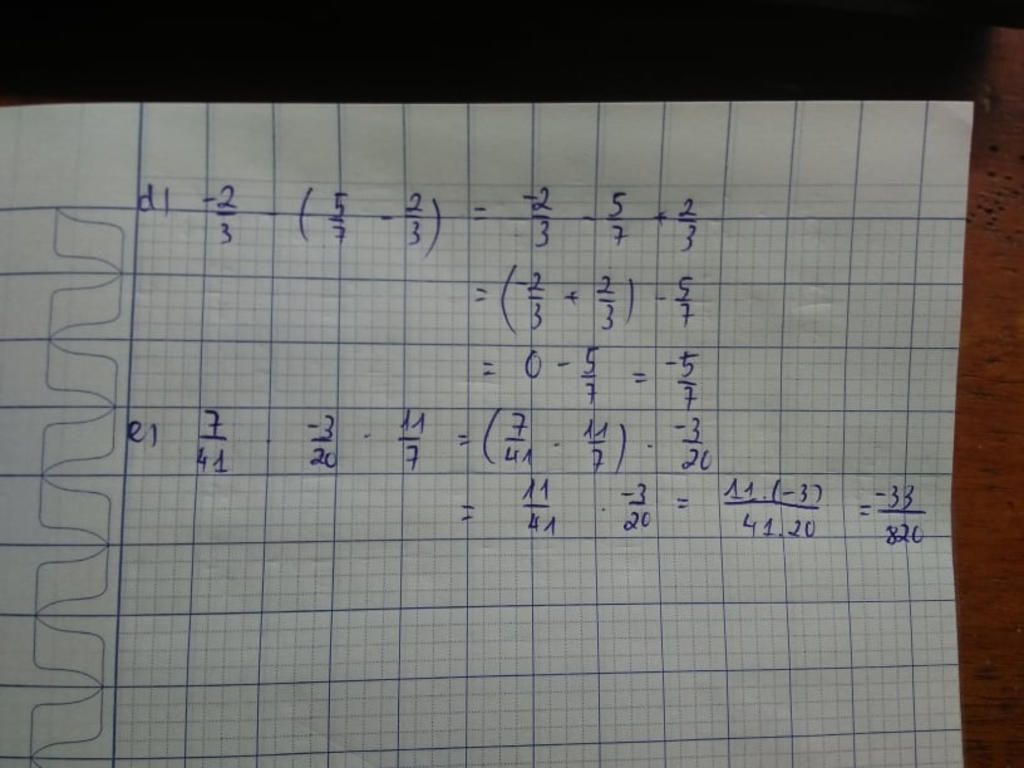 d) -2/3 - (5/7 - 2/3) = -2/3 - 5/7 + 2/3
= (-2/3 + 2/3) - 5/7
= 0 - 5/7 = -5/7
e) 7/41 . -3/20 . 11/7 = (7/41 . 11/7) . -3/20
= 11/41 . -3/20 = 11.(-3)/41.20 = -33/820